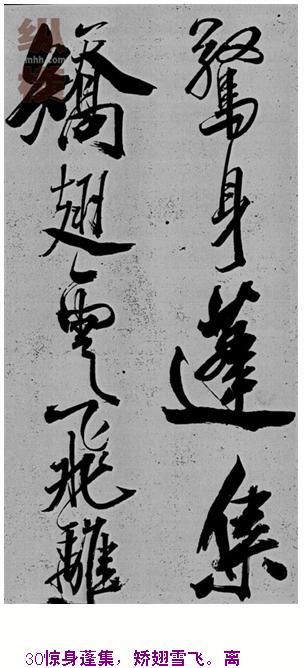 驚身蓬集
矯翅雪飛離
30惊身蓬集，矫翅雪飞。离